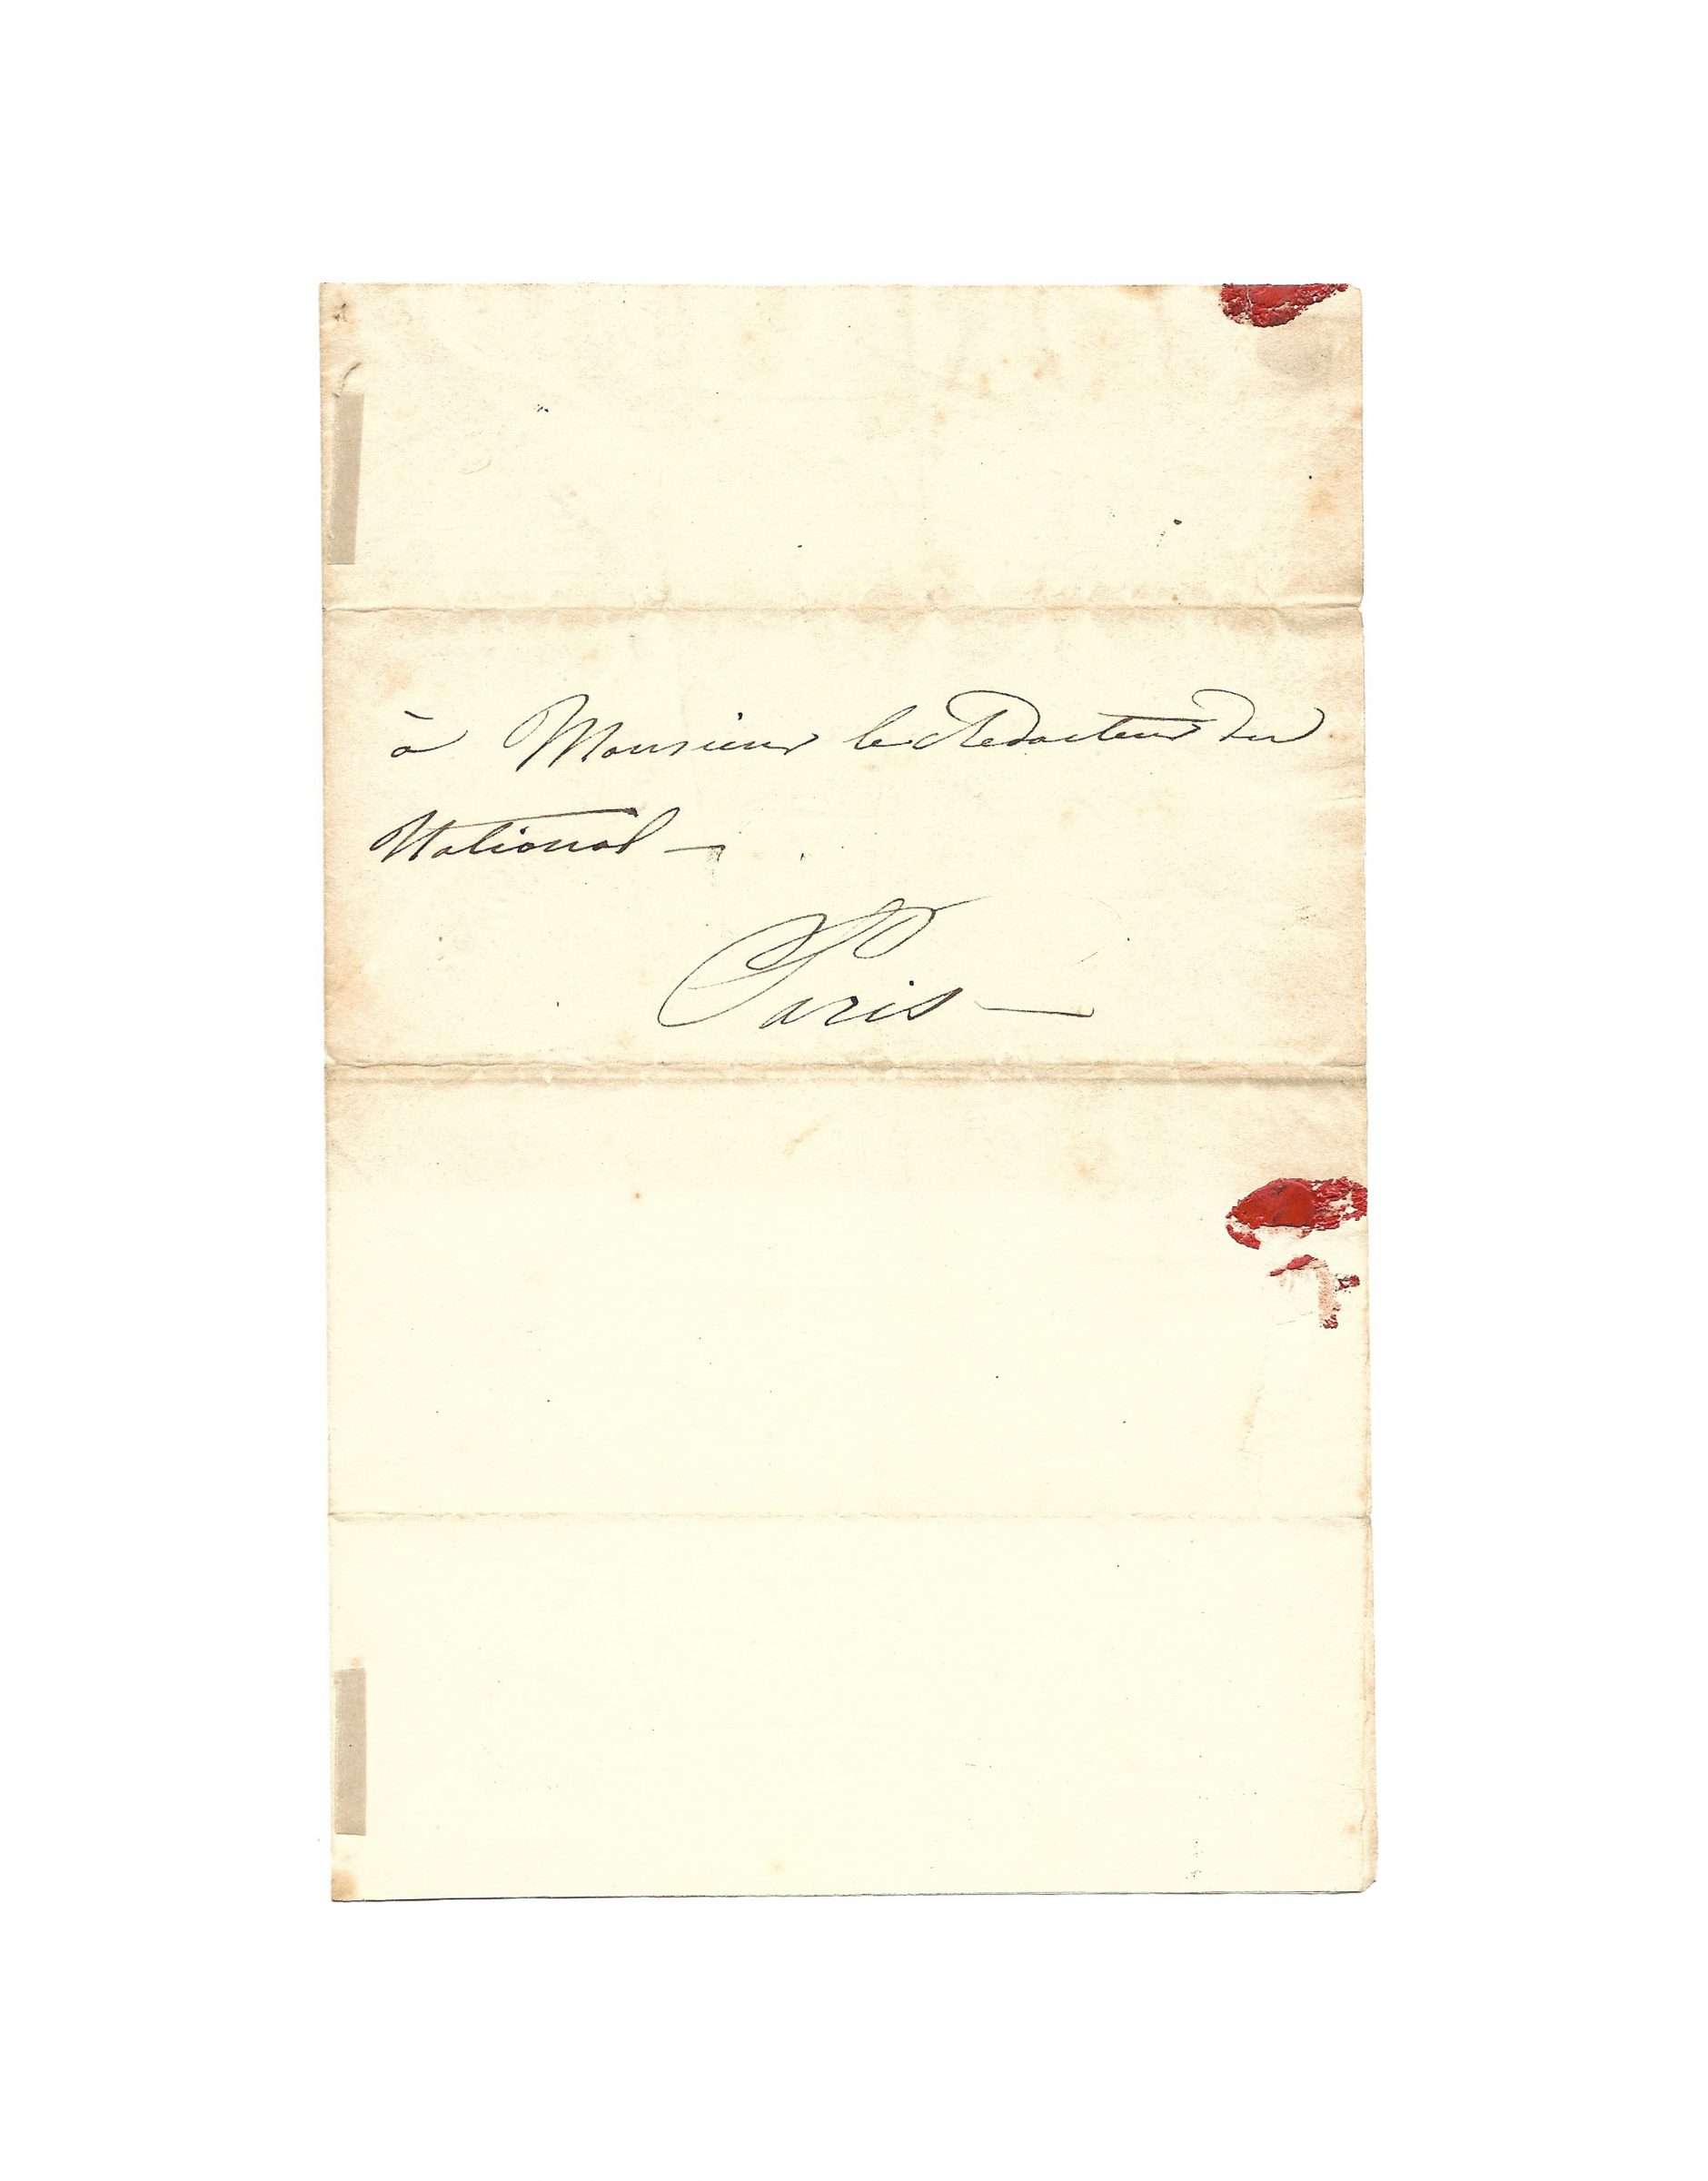 à Monsieur le Redacteur du
National —
Paris —